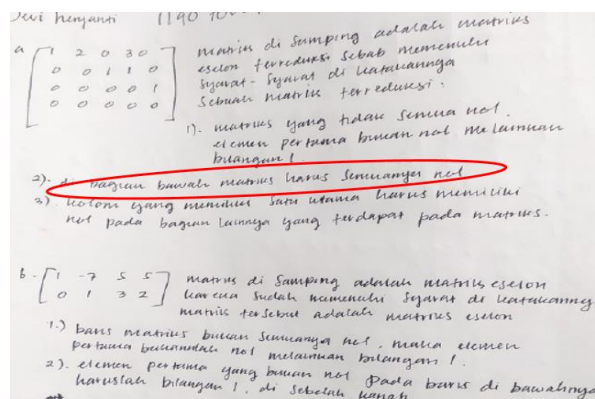 Devi Heryanti 1190
a
1 2 0 3 0
0 0 1 1 0
0 0 0 0 1
0 0 0 0 0
matriks di Samping adalah matriks
eselon terreduksi sebab memenuhi
syarat-syarat di katakannya
sebuah matriks terreduksi.
1). matriks yang tidak semua nol.
elemen pertama bukan nol melainkan
bilangan 1.
2). di bagian bawah matriks harus semuanya nol
3). kolom yang memiliki satu utama harus memiliki
nol pada bagian lainnya yang terdapat pada matriks.
b.
1 -7 5 5
0 1 3 2
matriks di Samping adalah matriks eselon
karena sudah memenuhi syarat di katakannya
matriks tersebut adalah matriks eselon
1.) baris matriks bukan semuanya nol. maka elemen
pertama bukanlah nol melainkan bilangan 1.
2). elemen pertama yang bukan nol pada baris di bawahnya
haruslah bilangan 1. di sebelah kanan